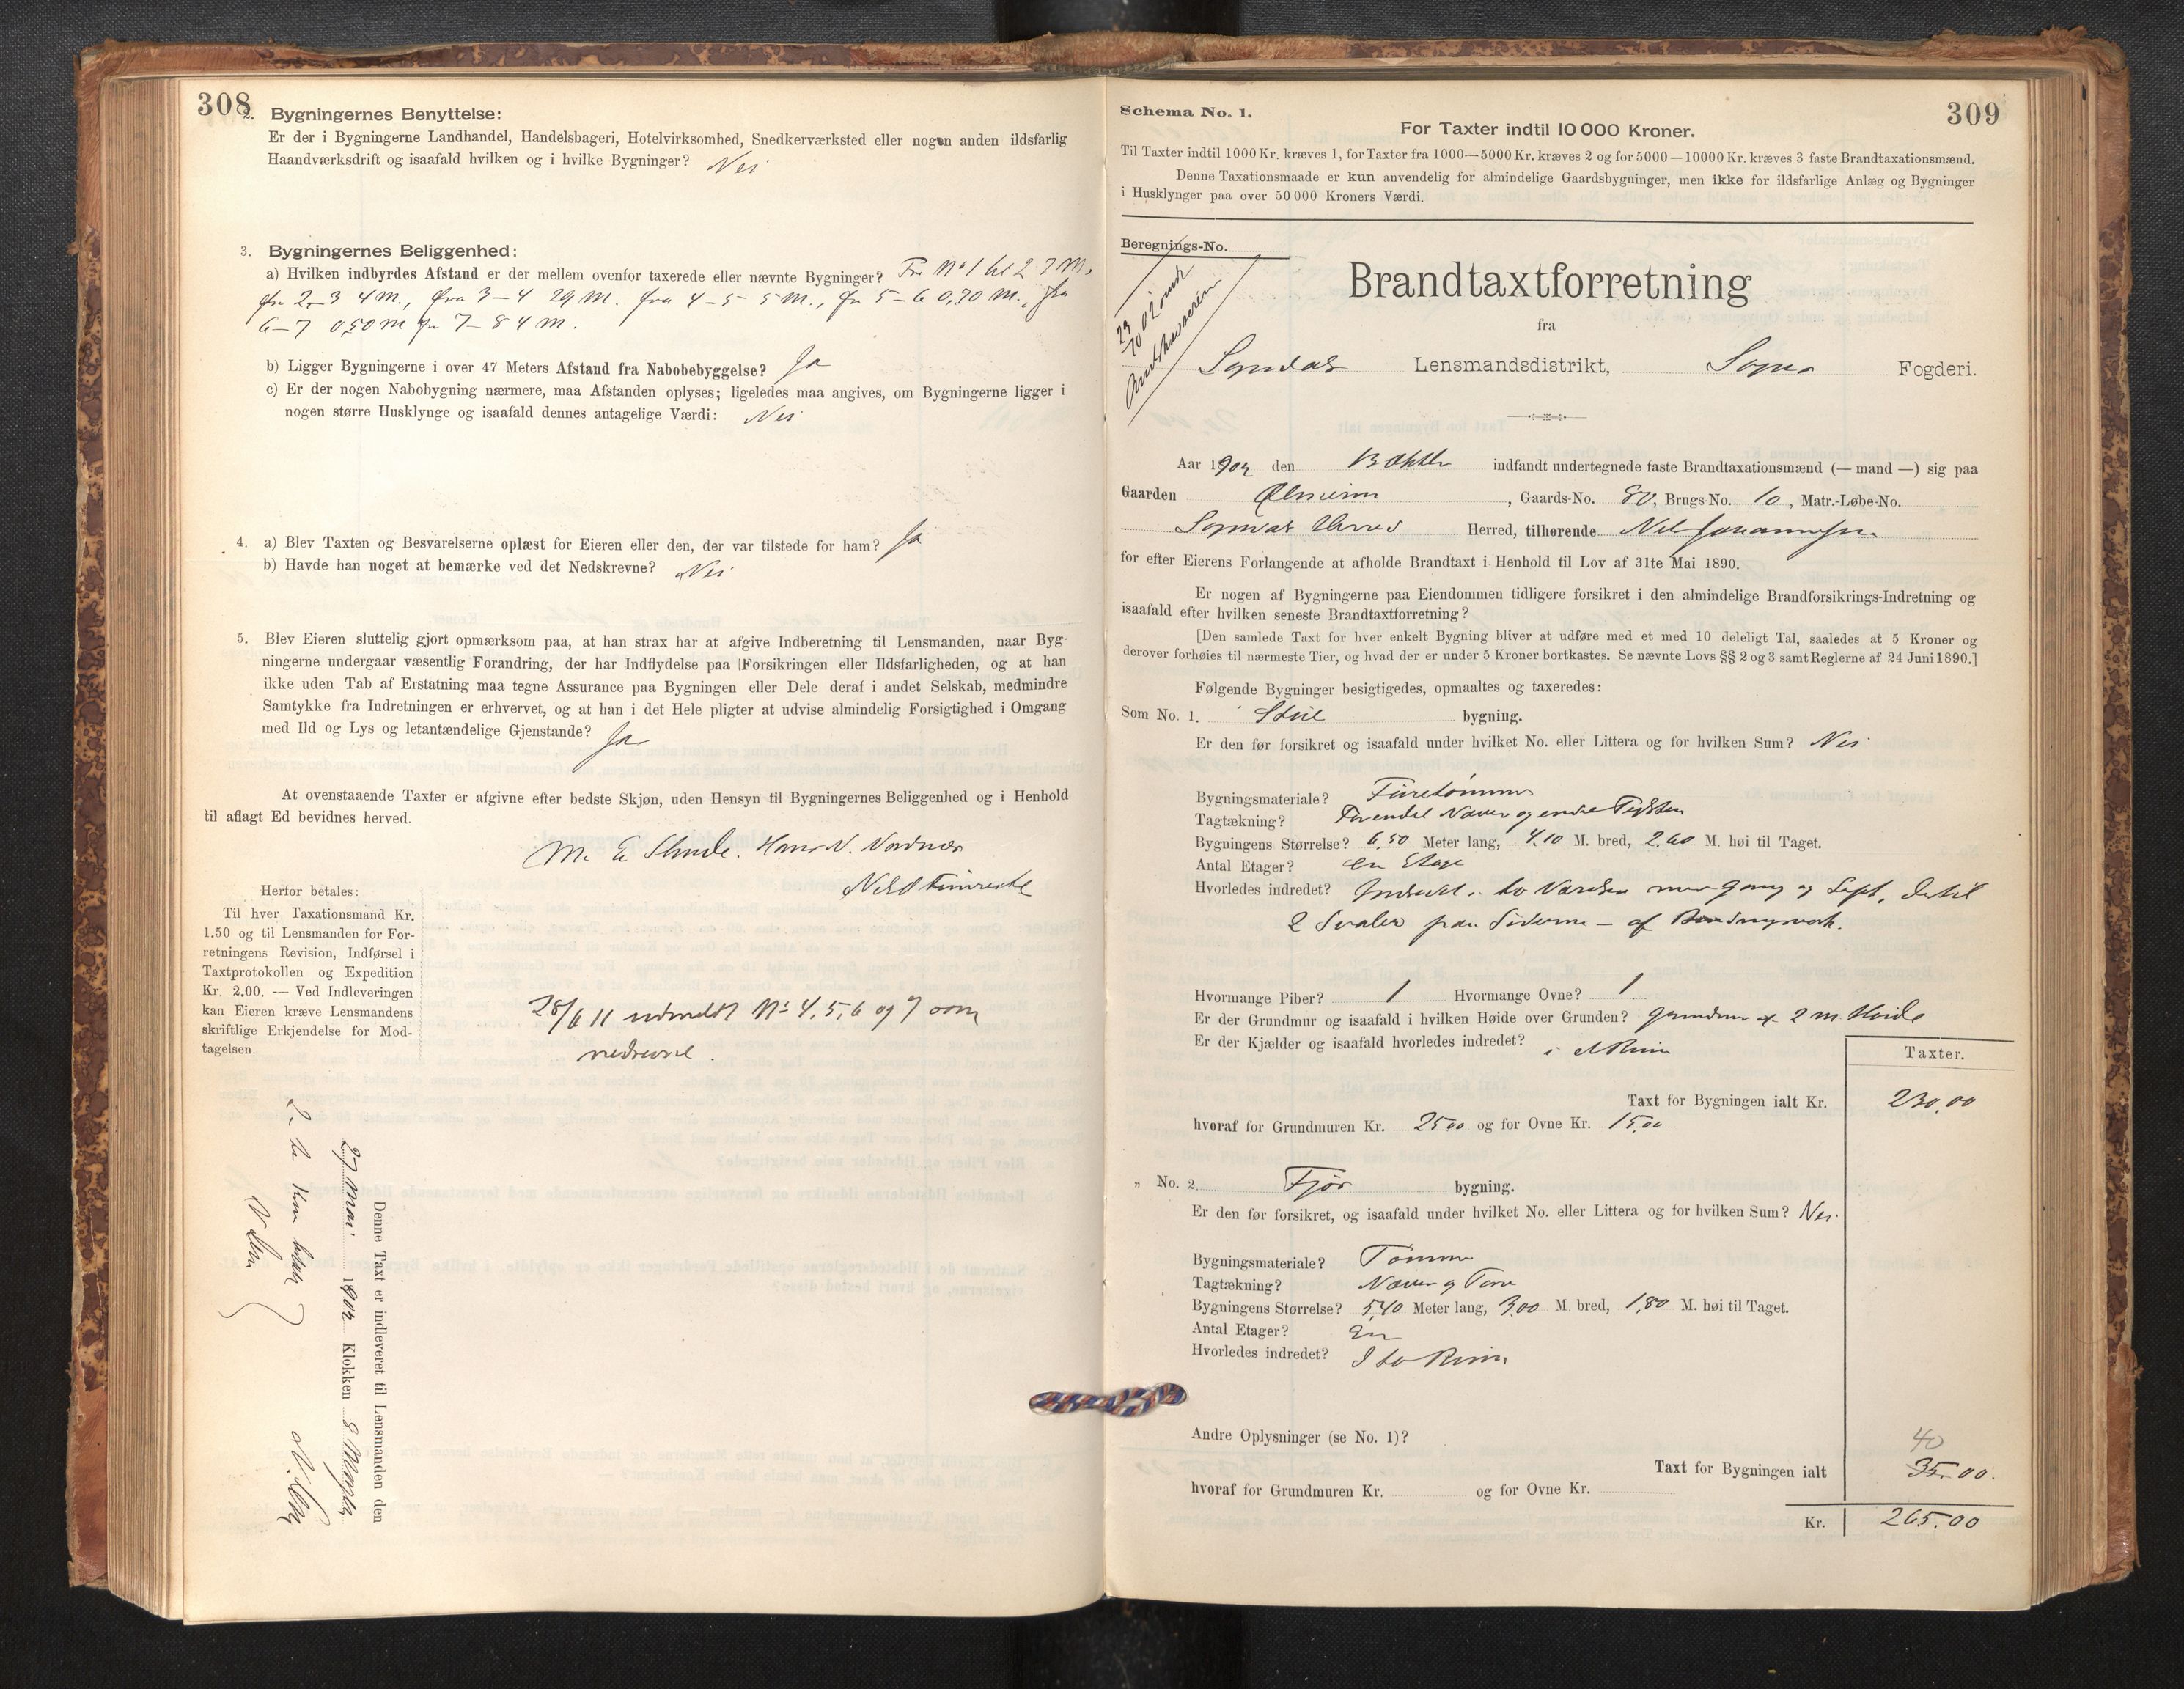 308
2. Bygningernes Benyttelse:
Er der i Bygningerne Landhandel, Handelsbageri, Hotelvirksomhed, Snedkerværksted eller nogen anden ildsfarlig
Haandværksdrift og isaafald hvilken og i hvilke Bygninger? Nei
3. Bygningernes Beliggenhed:
a) Hvilken indbyrdes Afstand er der mellem ovenfor taxerede eller nævnte Bygninger? Fra No 1 til 2 7 M.
fra 2–3 4 M., fra 3–4 29 M. fra 4–5 5 M., fra 5–6 0,70 M., fra
6–7 0,50 M fra 7–8 4 M.
b) Ligger Bygningerne i over 47 Meters Afstand fra Nabobebyggelse? Ja
c) Er der nogen Nabobygning nærmere, maa Afstanden oplyses; ligeledes maa angives, om Bygningerne ligger i
nogen større Husklynge og isaafald dennes antagelige Værdi: Nei
4. a) Blev Taxten og Besvarelserne oplæst for Eieren eller den, der var tilstede for ham? Ja
b) Havde han noget at bemærke ved det Nedskrevne? Nei
5. Blev Eieren sluttelig gjort opmærksom paa, at han strax har at afgive Indberetning til Lensmanden, naar Byg-
ningerne undergaar væsentlig Forandring, der har Indflydelse paa Forsikringen eller Ildsfarligheden, og at han
ikke uden Tab af Erstatning maa tegne Assurance paa Bygningen eller Dele deraf i andet Selskab, medmindre
Samtykke fra Indretningen er erhvervet, og at han i det Hele pligter at udvise almindelig Forsigtighed i Omgang
med Ild og Lys og letantændelige Gjenstande? Ja
At ovenstaaende Taxter er afgivne efter bedste Skjøn, uden Hensyn til Bygningernes Beliggenhed og i Henhold
til aflagt Ed bevidnes herved.
M. E. Hans N.
Herfor betales:
Til hver Taxationsmand Kr.
1.50 og til Lensmanden for For-
retningens Revision, Indførsel i
Taxtprotokollen og Expedition
Kr. 2.00. — Ved Indleveringen
kan Eieren kræve Lensmandens
skriftlige Erkjendelse for Mod-
tagelsen.
28/6 11 udmeldt No 4, 5, 6 og 7 som
nedrevne.
Denne Taxt er indleveret til Lensmanden den
27 Mai 1902 Klokken 8
309
Schema No. 1.
For Taxter indtil 10 000 Kroner.
Til Taxter indtil 1000 Kr. kræves 1, for Taxter fra 1000—5000 Kr. kræves 2 og for 5000—10000 Kr. kræves 3 faste Brandtaxationsmænd.
Denne Taxationsmaade er kun anvendelig for almindelige Gaardsbygninger, men ikke for ildsfarlige Anlæg og Bygninger
i Husklynger paa over 50 000 Kroners Værdi.
Beregnings-No.
Brandtaxtforretning
fra
Sogndal Lensmandsdistrikt, Sogns Fogderi.
Aar 1902 den indfandt undertegnede faste Brandtaxationsmænd (— mand —) sig paa
Gaarden , Gaards-No. 80, Brugs-No. 10, Matr.-Løbe-No.
Sogndal Herred Herred, tilhørende Nils Johannessen
for efter Eierens Forlangende at afholde Brandtaxt i Henhold til Lov af 31te Mai 1890.
Er nogen af Bygningerne paa Eiendommen tidligere forsikret i den almindelige Brandforsikrings-Indretning og
isaafald efter hvilken seneste Brandtaxtforretning?
[Den samlede Taxt for hver enkelt Bygning bliver at udføre med et med 10 deleligt Tal, saaledes at 5 Kroner og
derover forhøies til nærmeste Tier, og hvad der er under 5 Kroner bortkastes. Se nævnte Lovs §§ 2 og 3 samt Reglerne af 24 Juni 1890.]
Følgende Bygninger besigtigedes, opmaaltes og taxeredes:
Som No. 1. bygning.
Er den før forsikret og isaafald under hvilket No. eller Littera og for hvilken Sum? Nei
Bygningsmateriale? Furetømmer
Tagtækning? Næver og
Bygningens Størrelse? 6,50 Meter lang, 4.10 M. bred, 2.60 M. høi til Taget.
Antal Etager? en Etage
Hvorledes indredet? Indredet i to Værelser med Gang og dertil
2 Svaler paa Siderne – af
Hvormange Piber? 1 Hvormange Ovne? 1
Er der Grundmur og isaafald i hvilken Høide over Grunden? Grundmur af 2 m. Høide
Er der Kjælder og isaafald hvorledes indredet? i et Rum
Taxter.
Taxt for Bygningen ialt Kr. 230,00
hvoraf for Grundmuren Kr. 25 00 og for Ovne Kr. 15,00
„ No. 2. Fjøs bygning.
Er den før forsikret, og isaafald under hvilket No. eller Littera og for hvilken Sum? Nei.
Bygningsmateriale? Tømmer
Tagtækning? Næver og Torv
Bygningens Størrelse? 5,40 Meter lang, 3,00 M. bred, 1,80 M. høi til Taget.
Antal Etager? En
Hvorledes indredet? I to Rum
Andre Oplysninger (se No. 1)?
40
Taxt for Bygningen ialt 35.00.
hvoraf for Grundmuren Kr. og for Ovne Kr.
Kr. 265.00